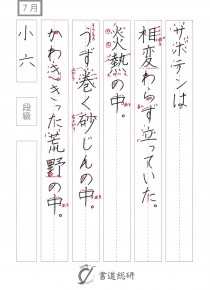 7月
サボテンは
相変わらず立っていた。
炎熱の中。
うず巻く砂じんの中。
かわききった荒野の中。
小六
段級
書道総研